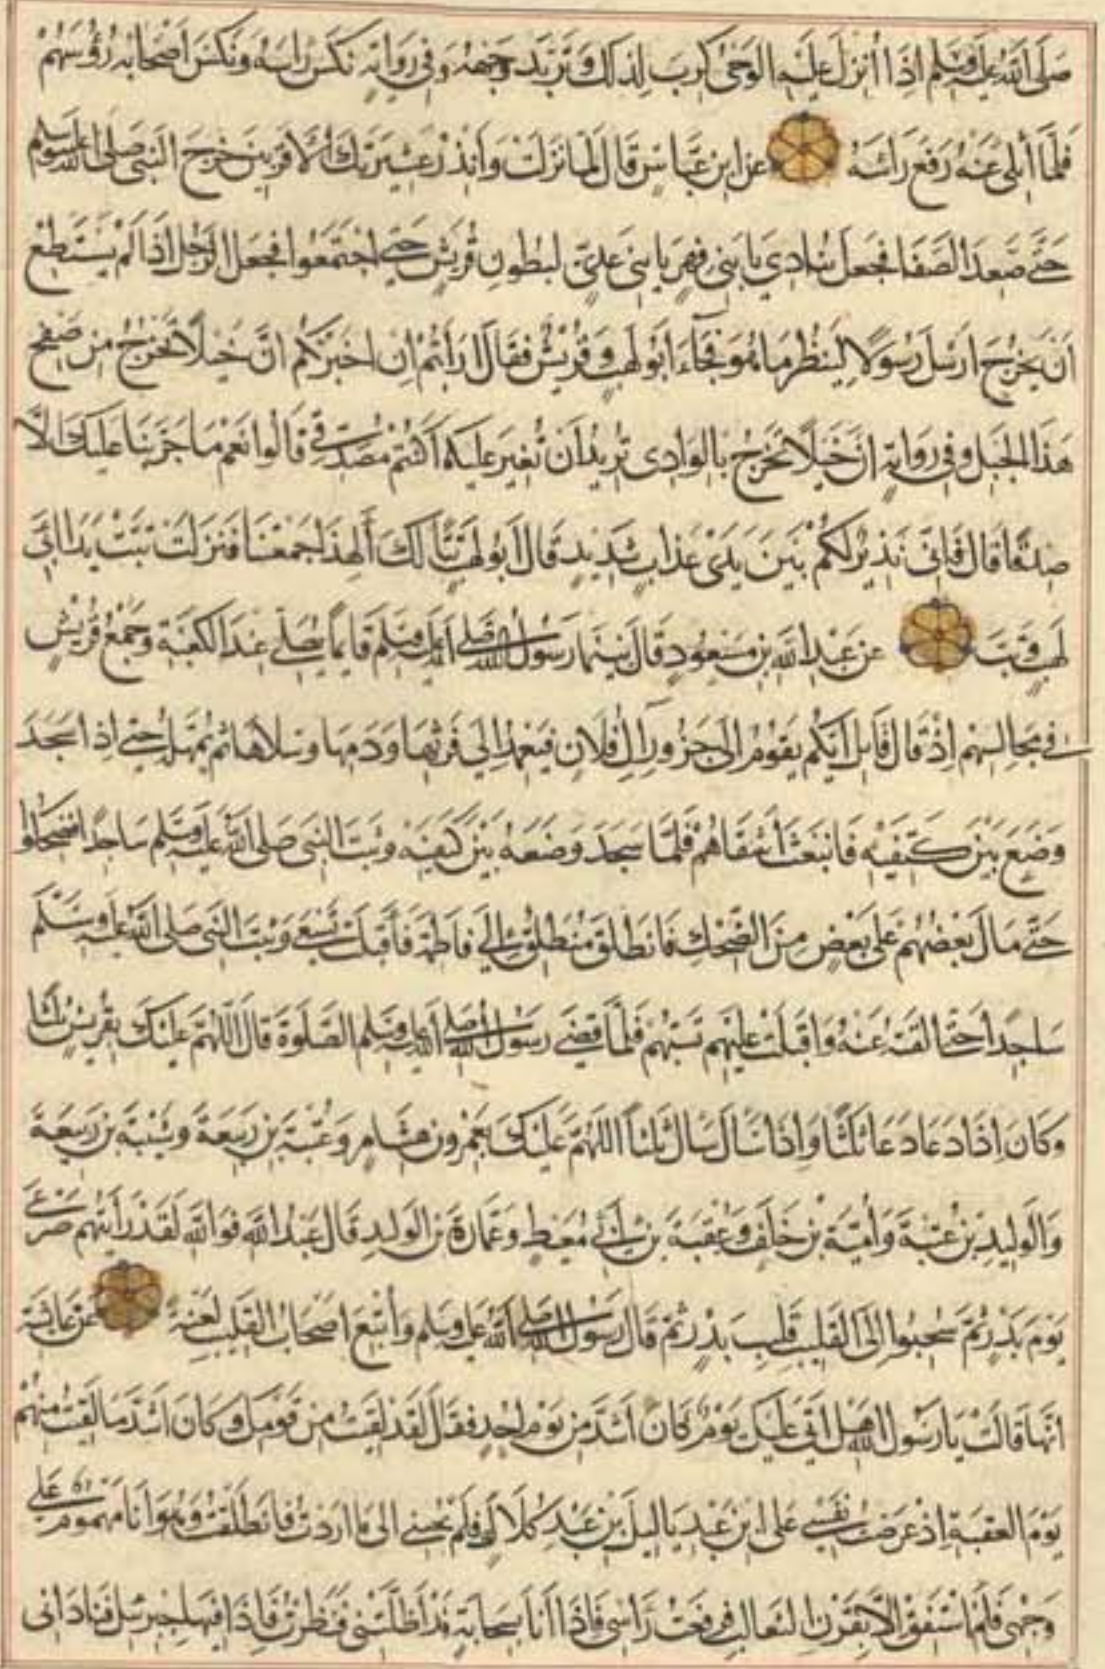 صَلَى اللهُ عَلَيْهِ وَسَلَم اِذَا أُنْزِلَ عَلَيْهِ الوَحْىُ كُرِبَ لِذٰلِكَ وَتَرَبَّدَ وَجْهُهُ وَفِى رِوَايَةٍ نَكَسَ رَاسَهُ وَنَكَسَ اَصْحَابُه رُؤُسَهُمْ
فَلَمَّا أُتْلِىَ عَنْهُ رَفَعَ رَاسَهُ عن ابن عَبَّاسٍ قَالَ لَمَّا نَزَلَتْ وَأنْذِرْ عَشِيرَتَكَ الأقْرَبِينَ خَرَجَ النَبِى صَلى الله عليه وسلم
حَتَّى صَعِدَ الصَفَا فَجَعَلَ يُنَادِى يَا بَنِى فِهْرٍ يَا بَنِى عَدِىٍّ لِبُطُونِ قُرَيْشٍ حَتَّى اجْتَمَعُوا فَجَعَلَ الرَجُلُ اِذَا لَمْ يَسْتَطِعْ
اَنْ يَخْرُجَ اَرْسَلَ رَسُولاً لِيَنْظُرَ مَا هُوَ فَجَاءَ اَبُو لَهَبٍ وَ قُرَيْشٌ فَقَالَ اَرَاَيْتُمْ اِنْ اَخْبَرْتُكُمْ اَنَّ خَيْلاً تَخْرُجُ مِن صَفْحِ
هَذَا الجَبَلِ وَفى رِوَايَةٍ اَنَّ خَيْلاً تَخْرُجُ بِالوَادِى تُرِيدُ اَنْ تُغِيرَ عَلَيْكُم اَكُنْتُمْ مُصَدِّقِىَّ قَالُوا نَعَمْ مَا جَرَّبْنَا عَلَيْكَ الَّا
صِدْقًا قَالَ فَاِنِّى نَذِيرٌ لَكُمْ بَيْنَ يَدَىْ عَذَابٍ شَدِيدٍ قَالَ اَبُو لَهَبٍ تَبًّا لَكَ أَلِهٰذَا جَمَعْتَنَا فَنَزَلَتْ تَبَّتْ يَدَا اَبِى
لَهَبٍ وَتَبَّ عَنْ عَبْدِ اللهِ بن مَسْعُودٍ قَالَ بَيْنَمَا رَسُولُ اللهِ صَلى الله عليه وَسَلم قَايمًا يُصَلِّى عِنْدَ الكَعْبَةِ وَجَمْعُ قُرَيْشٍ
فِى مَجَالِسِهِم اِذْ قَالَ قَايِل اَيُّكُم يَقُومُ اِلَى جَزُورِ اٰلِ فُلَانٍ فَيَعْمِدُ اِلَى فَرْثِهَا وَدَمِهَا وَسَلَاهَا ثُمَّ يُمْهِلُهُ حَتَّى اِذَا سَجَدَ
وَضَعَ بَيْنَ كَتِفَيْهِ فَانْبَعَثَ اَشْقَاهُمْ فَلَمَّا سَجَدَ وَضَعَهُ بَيْنَ كَتِفَيْهِ وَثَبَتَ النَبى صَلى اللهُ عَلَيْهِ وَسَلم سَاجِدًا فَضَحِكُوا
حَتَّى مَالَ بَعْضُهُمْ عَلَى بَعْضٍ مِنَ الضَّحِكِ فَانْطَلَقَ مُنْطَلِقٌ اِلَى فَاطِمَةَ فَأَقْبَلَتْ تَسْعَى وَثَبَتَ النَبِى صَلى الله عَلَيْهِ وَسَلَّمَ
سَاجِدًا حَتَّى اَلقَتْهُ عَنْهُ وَاَقْبَلَتْ عَلَيْهِم تَسُبُّهُمْ فَلَمَّا قَضَى رَسُولُ اللهِ صَلى الله عليه وَسَلم الصَّلٰوةَ قَالَ اَللّٰهُمَّ عَلَيْكَ بِقُرَيْشٍ ثَلٰثًا
وَكَانَ اِذَا دَعَا دَعَا ثَلٰثًا وَاِذَا سَاَلَ سَاَلَ ثَلٰثًا اَللّٰهُمَّ عَلَيْكَ بِعَمْرِو بْنِ هِشَامٍ وَعُتْبَةَ بْنِ رَبِيعَةَ وَشَيْبَةَ بْنِ رَبِيعَةَ
وَالْوَلِيدِ بْنِ عُتْبَةَ وَأُمَيَّةَ بْنِ خَلَفٍ وَعُقْبَةَ بْنِ اَبِى مُعَيْطٍ وَعُمَارَةَ بْنِ الوَلِيدِ قَالَ عَبْدُ اللهِ فَوَ اللهِ لَقَدْ رَاَيْتُهُم صَرْعَى
يَوْمَ بَدْرٍ ثُمَّ سُحِبُوا اِلَى القَلِيبِ قَلِيبِ بَدْرٍ ثُمَّ قَالَ رَسُولُ اللهِ صَلى اللهُ عليه وَسَلم وَأُتْبِعَ اَصْحَابُ القَلِيبِ لَعْنَةً عَنْ عَايشَةَ
انَّهَا قَالَتْ يَا رَسُولَ اللهِ هَل اَتَى عَلَيْكَ يَوْمٌ كَانَ اَشَدَّ مِن يَوْمِ اُحُدٍ فَقَالَ لَقَدْ لَقِيتُ مِن قَوْمِكِ وَكَانَ اَشَدَّ مَا لَقِيتُ مِنْهُمْ
يَوْمَ العَقَبَةِ اِذْ عَرَضْتُ نَفْسِى عَلَى ابْنِ عَبْدِ يَا لِيلَ بْنِ عَبْدِ كُلَالٍ فَلَمْ يُجِبْنِى اِلَى مَا اَرَدْتُ فَانْطَلَقْتُ وَاَنَا مَهْمُومٌ عَلَى
وَجْهِى فَلَمْ اَسْتَفِقْ اِلاَّ بِقَرْنِ الثَعَالِبِ فَرَفَعْتُ رَاْسِى فَاِذَا اَنَا بِسَحَابَةٍ قَدْ اَظَلَّتْنِى فَنَظَرْتُ فَاِذَا فِيهَا جِبْرَئِيل فَنَادَانِى